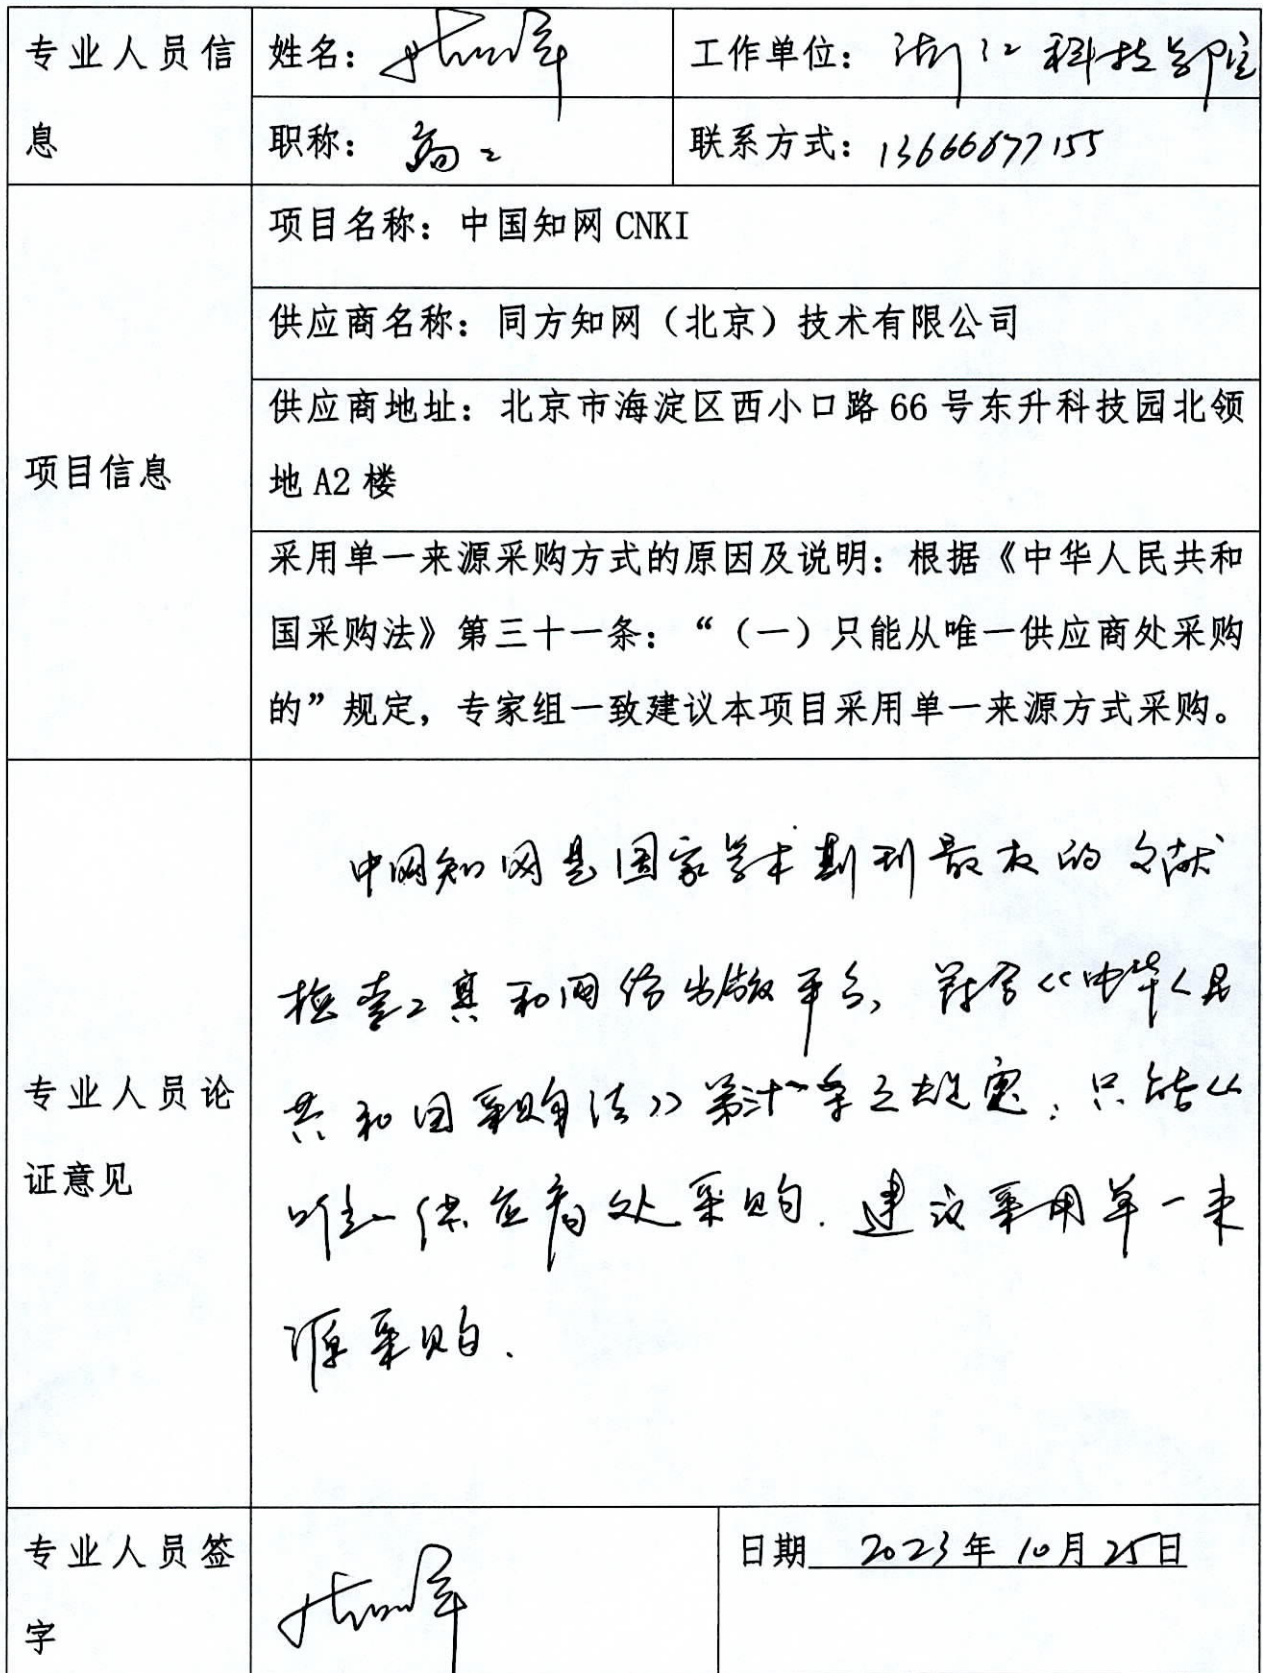 专业人员信息
姓名：
工作单位：浙江科技学院
职称：高工
联系方式：13666677155
项目信息
项目名称：中国知网 CNKI
供应商名称：同方知网（北京）技术有限公司
供应商地址：北京市海淀区西小口路 66 号东升科技园北领
地 A2 楼
采用单一来源采购方式的原因及说明：根据《中华人民共和
国采购法》第三十一条：“（一）只能从唯一供应商处采购
的”规定，专家组一致建议本项目采用单一来源方式采购。
专业人员论
证意见
中网知网是国家学术期刊最大的文献
检索工具和网络出版平台，符合《中华人民
共和国采购法》第三十一条之规定，只能从
唯一供应商处采购．建议采用单一来
源采购．
专业人员签
字
日期 2023年10月25日